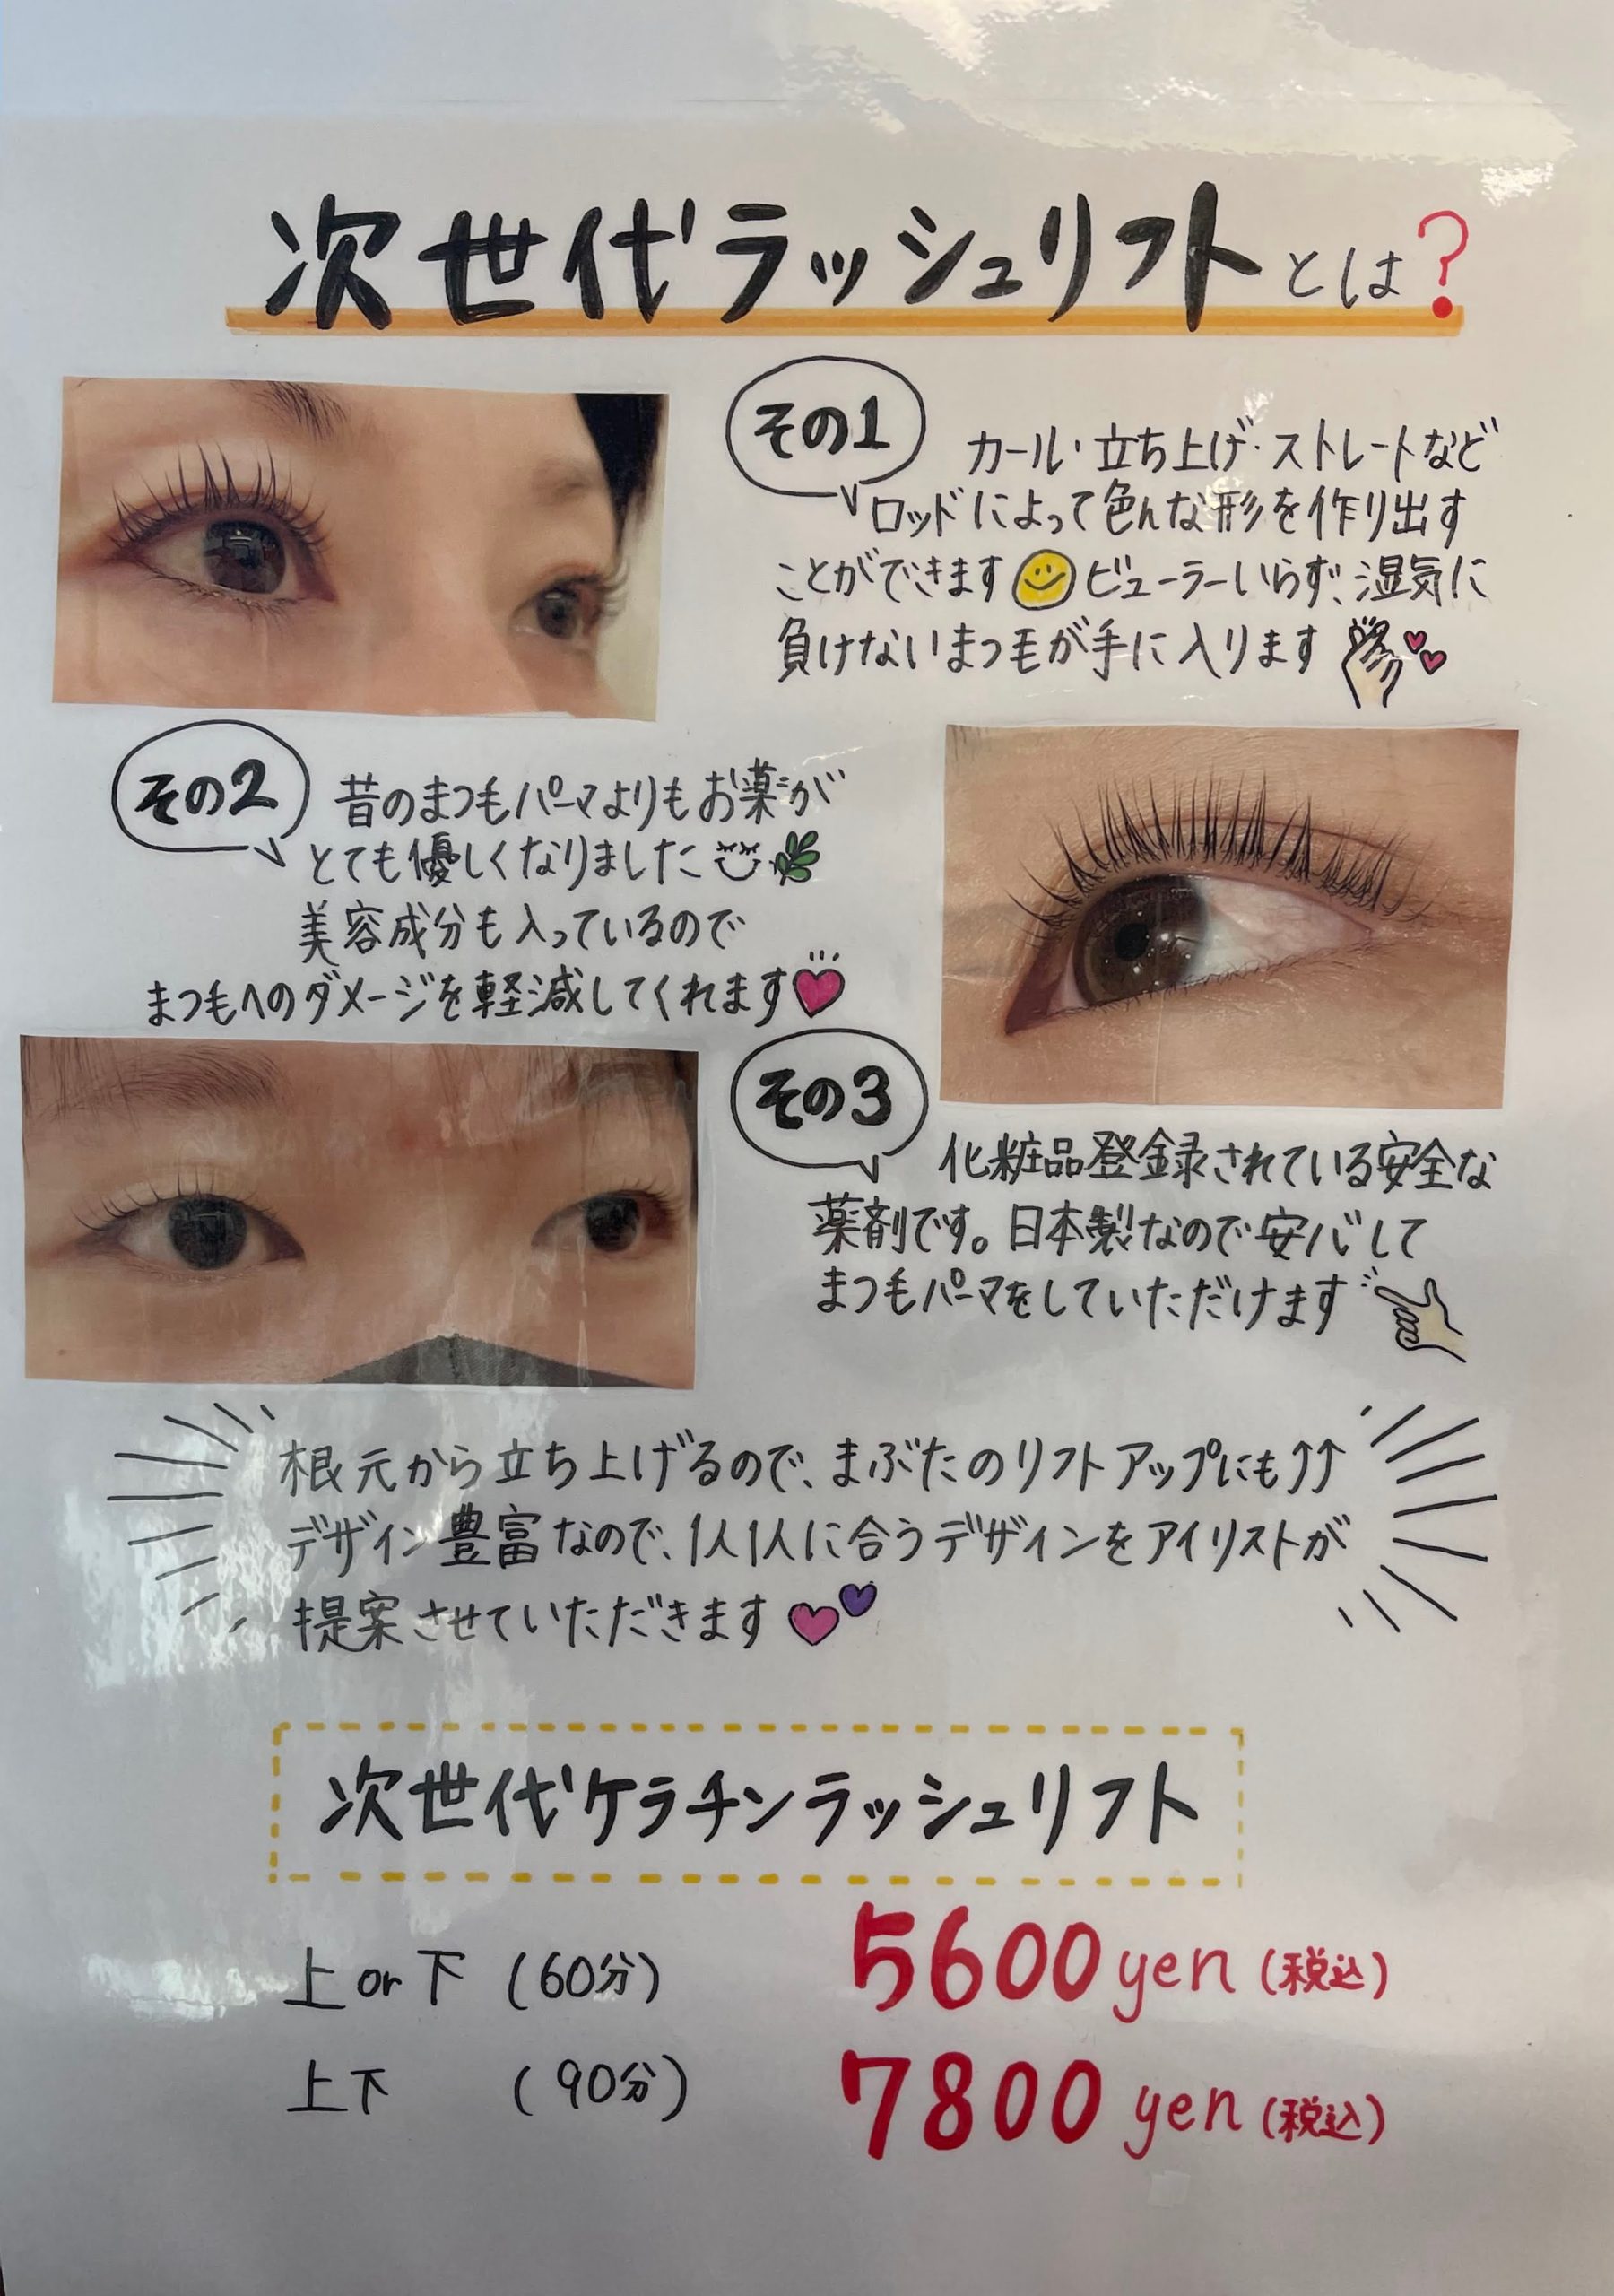 次世代ラッシュリフトとは?
その1
カール・立ち上げ・ストレートなど
ロッドによって色んな形を作り出す
ことができます ビューラーいらず、湿気に
負けないまつ毛が手に入ります
その2
昔のまつもパーマよりもお薬が
とても優しくなりました
美容成分も入っているので
まつもへのダメージを軽減してくれます
その3
化粧品登録されている安全な
薬剤です。日本製なので安心して
まつもパーマをしていただけます
根元から立ち上げるので、まぶたのリフトアップにも↑↑
デザイン豊富なので、1人1人に合うデザインをアイリストが
提案させていただきます
次世代ケラチンラッシュリフト
上or下 (60分) 5600yen (税込)
上下 (90分) 7800yen (税込)